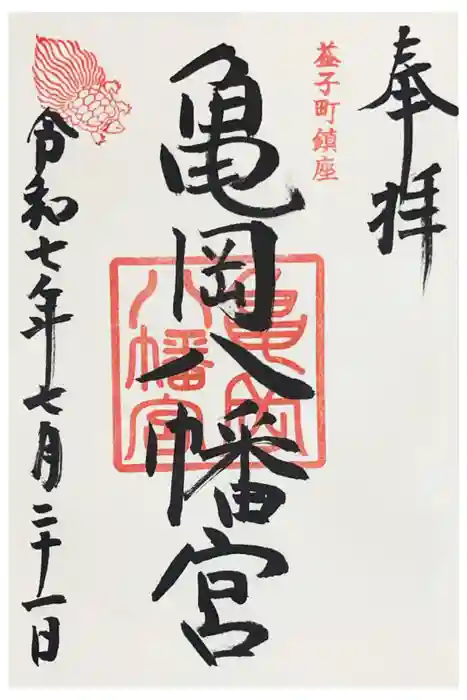 奉拝
益子町鎮座
亀岡八幡宮
亀岡
八幡宮
令和七年七月二十一日